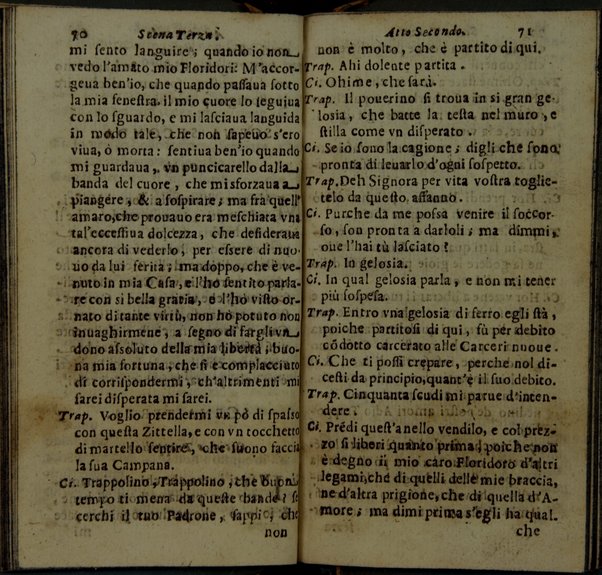 70 Scena Terza.
mi sento languire; quando io non
vedo l'amato mio Floridori: M'accor-
geua ben'io, che quando passaua sotto
la mia fenestra. il mio cuore lo seguiua
con lo sguardo, e mi lasciaua languida
in modo tale, che non sapeuo s'ero
viua, ò morta: sentiua ben'io quando
mi guardaua, vn puncicarello dalla
banda del cuore, che mi sforzaua a
piangere, & a sospirare; ma frà quell'
amaro, che prouauo era meschiata vna
tal'eccessiua dolcezza, che desideraua
ancora di vederlo, per essere di nuo-
uo da lui ferita; ma doppo, che è ve-
nuto in mia Casa, e l'hò sentito parla-
re con sì bella gratia, e l'hò visto or-
nato di tante virtù, non hò potuto non
inuaghirmene, a segno di fargli vn
dono assoluto della mia libertà; buo-
na mia fortuna, che si è complacciuto
di corrispondermi, ch'altrimenti mi
sarei disperata mi sarei.
Trap. Voglio prendermi vn pò di spasso
con questa Zittella, e con vn tocchetto
di martello sentire, che suono faccia
la sua Campana.
Ci. Trappolino, Trappolino, che buon
tempo ti mena da queste bande? se
cerchi il tuo Padrone, sappi, che
non
Atto Secondo. 71
non è molto, che è partito di qui.
Trap. Ahi dolente partita.
Ci. Ohime, che sarà.
Trap. Il pouerino si troua in si gran ge-
losia, che batte la testa nel muro, e
stilla come vn disperato.
Ci. Se io sono la cagione; digli che sono
pronta di leuarlo d'ogni sospetto.
Trap. Deh Signora per vita vostra toglie-
telo da questo affanno.
Ci. Purche da me possa venire il soccor-
so, son pronta a darloli; ma dimmi,
oue l'hai tù lasciato?
Trap. In gelosia.
Ci. In qual gelosia parla, e non mi tener
più sospesa.
Trap. Entro vna gelosia di ferro egli stà,
poiche partitosi di qui, fù per debito
cõdotto carcerato alle Carceri nuoue.
Ci. Che ti possi crepare, perche nol di-
cesti da principio, quant'è il suo debito.
Trap. Cinquanta scudi mi parue d'inten-
dere.
Ci. Prẽdi quest'anello vendilo, e col prez-
zo si liberi quanto prima, poiche non
è degno il mio caro Floridoro d'altri
legami, che di quelli delle mie braccia,
ne d'altra prigione, che di quella d'A-
more; ma dimi prima s'egli ha qual.
che